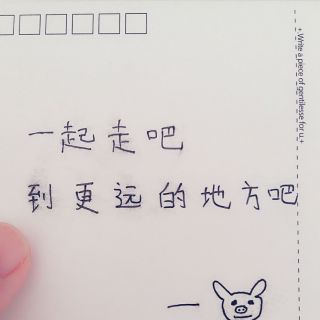 + Write a piece of gentilesse for u.+
一起走吧
到更远的地方吧
一